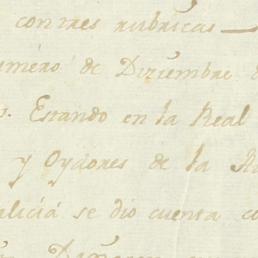 con tres rubricas
mero de Diziembre
Estando en la Real
y Oydores de la
alicia se dio cuenta